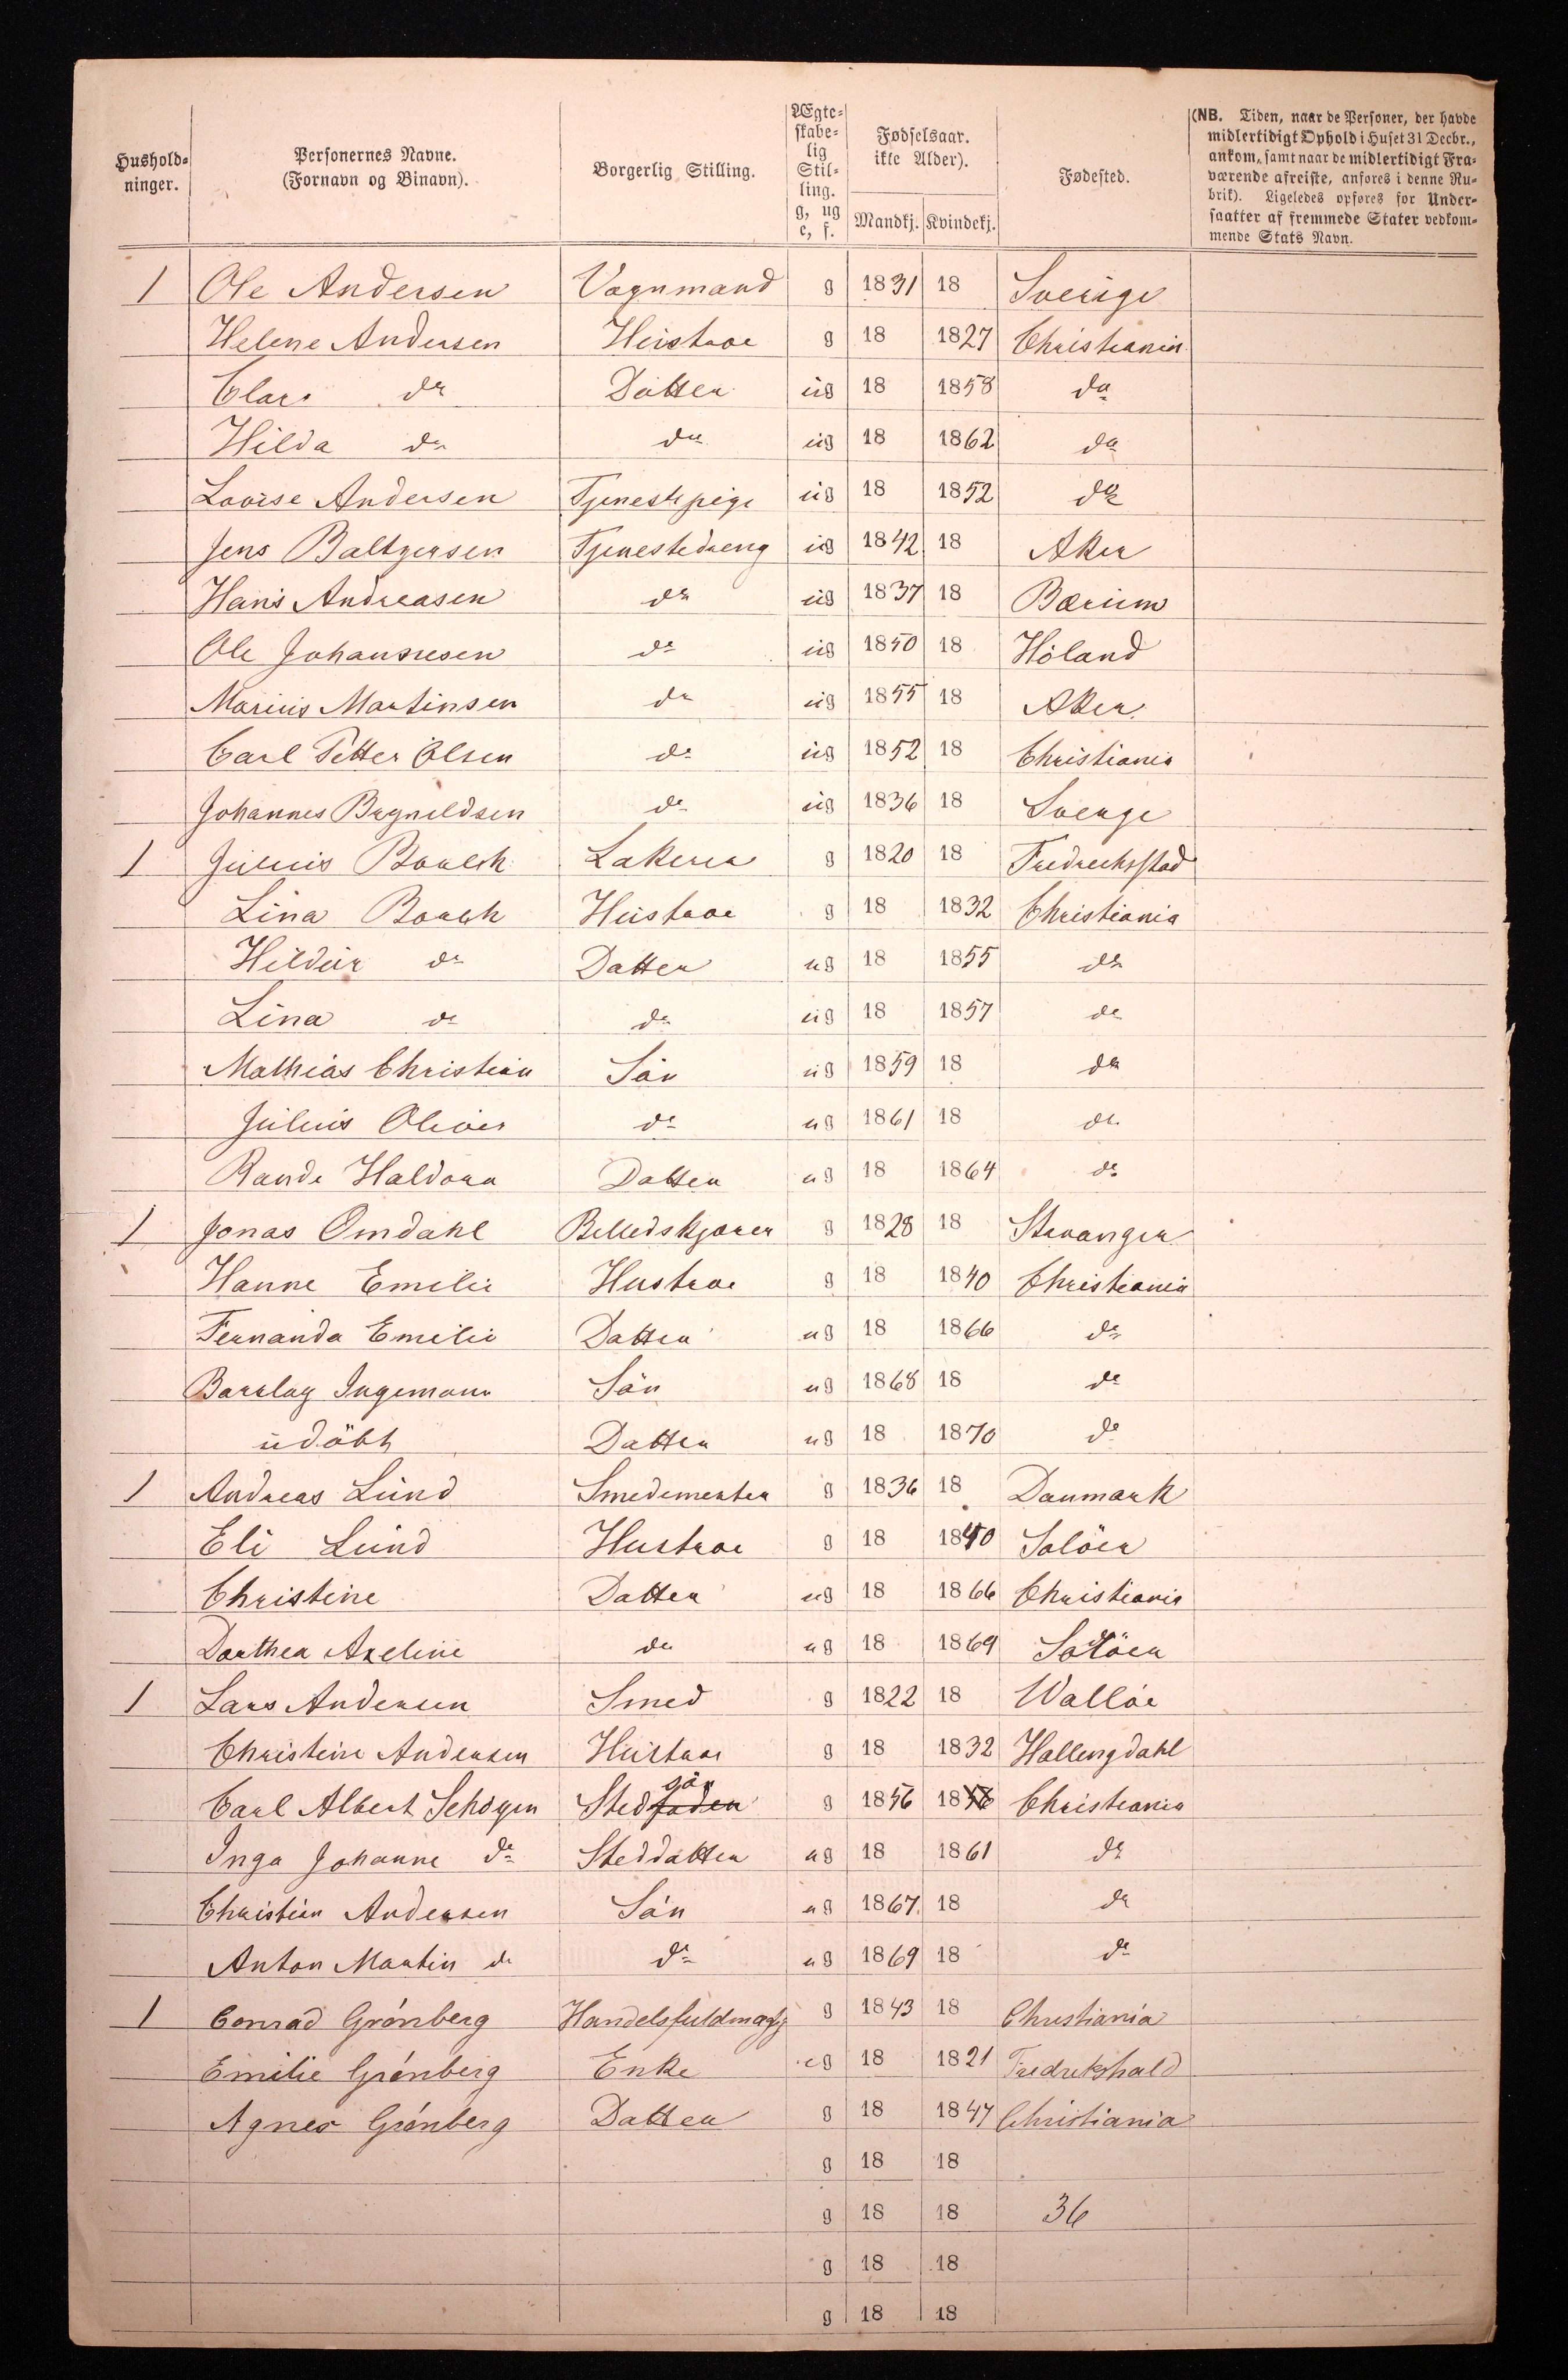 Hushold-
ninger.
Personernes Navne.
(Fornavn og Binavn).
Borgerlig Stilling.
Ægte-
skabe-
lig
Stil-
ling.
g, ug
e, f.
Fødselsaar.
ikke Alder).
Mandkj. Kvindekj.
Fødested.
(NB. Tiden, naar de Personer, der havde
midlertidigt Ophold i Huset 31 Decbr.,
ankom, samt naar de midlertidigt Fra-
værende afreiste, anføres i denne Ru-
brik). Ligeledes opføres for Under-
saatter af fremmede Stater vedkom-
mende Stats Navn.
1 Ole Andersen Vognmand g 1831 18 Sverige
Helene Andersen Hustroe g 18 1827 Christiania
Clara do Datter ug 18 1858 do
Hilda do do ug 18 1862 do
Lovise Andersen Tjenestepige ug 18 1852 do
Jens Baltzersen Tjenestedreng ug 1842 18 Aker
Hans Andreasen do ug 1837 18 Bærum
Ole Johannesen do ug 1850 18 Höland
Marius Martinsen do ug 1855 18 Aker
Carl Petter Olsen do ug 1852 18 Christiania
Johannes Brynildsen do ug 1836 18 Sverge
1 Julius Borch Lakerer g 1820 18 Fredrechsstad
Lina Borch Hustroe g 18 1832 Christiania
Hildur do Datter ug 18 1855 do
Lina do do ug 18 1857 do
Mathias Christian Sön ug 1859 18 do
Julius Oliver do ug 1861 18 do
Randi Haldora Datter ug 18 1864 do
1 Jonas Omdahl Billedskjærer g 1828 18 Stavanger
Hanne Emilie Hustroe g 18 1840 Christiania
Fernanda Emilie Datter ug 18 1866 do
Barclay Ingemann Sön ug 1868 18 do
udöbt Datter ug 18 1870 do
1 Andreas Lund Smedemester g 1836 18 Danmark
Eli Lund Hustroe g 18 1840 Solöer
Christine Datter ug 18 1866 Christiania
Dorthea Axeline do ug 18 1869 Solöer
1 Lars Andersen Smed g 1822 18 Wallöe
Christine Andersen Hustroe g 18 1832 Hallengdahl
sön
Carl Albert Schögen Stedfader g 1856 1856 Christiania
Inga Johanne do Steddatter ug 18 1861 do
Christian Andersen Sön ug 1867 18 do
Anton Martin do do ug 1869 18 do
1 Conrad Grönberg Handelsfuldmægg g 1843 18 Christiania
Emilie Grönberg Enke eg 18 1821 Fredrikshald
Agnes Grönberg Datter g 18 1847 Christiania
g 18 18
g 18 18 36
g 18 18
g 18 18